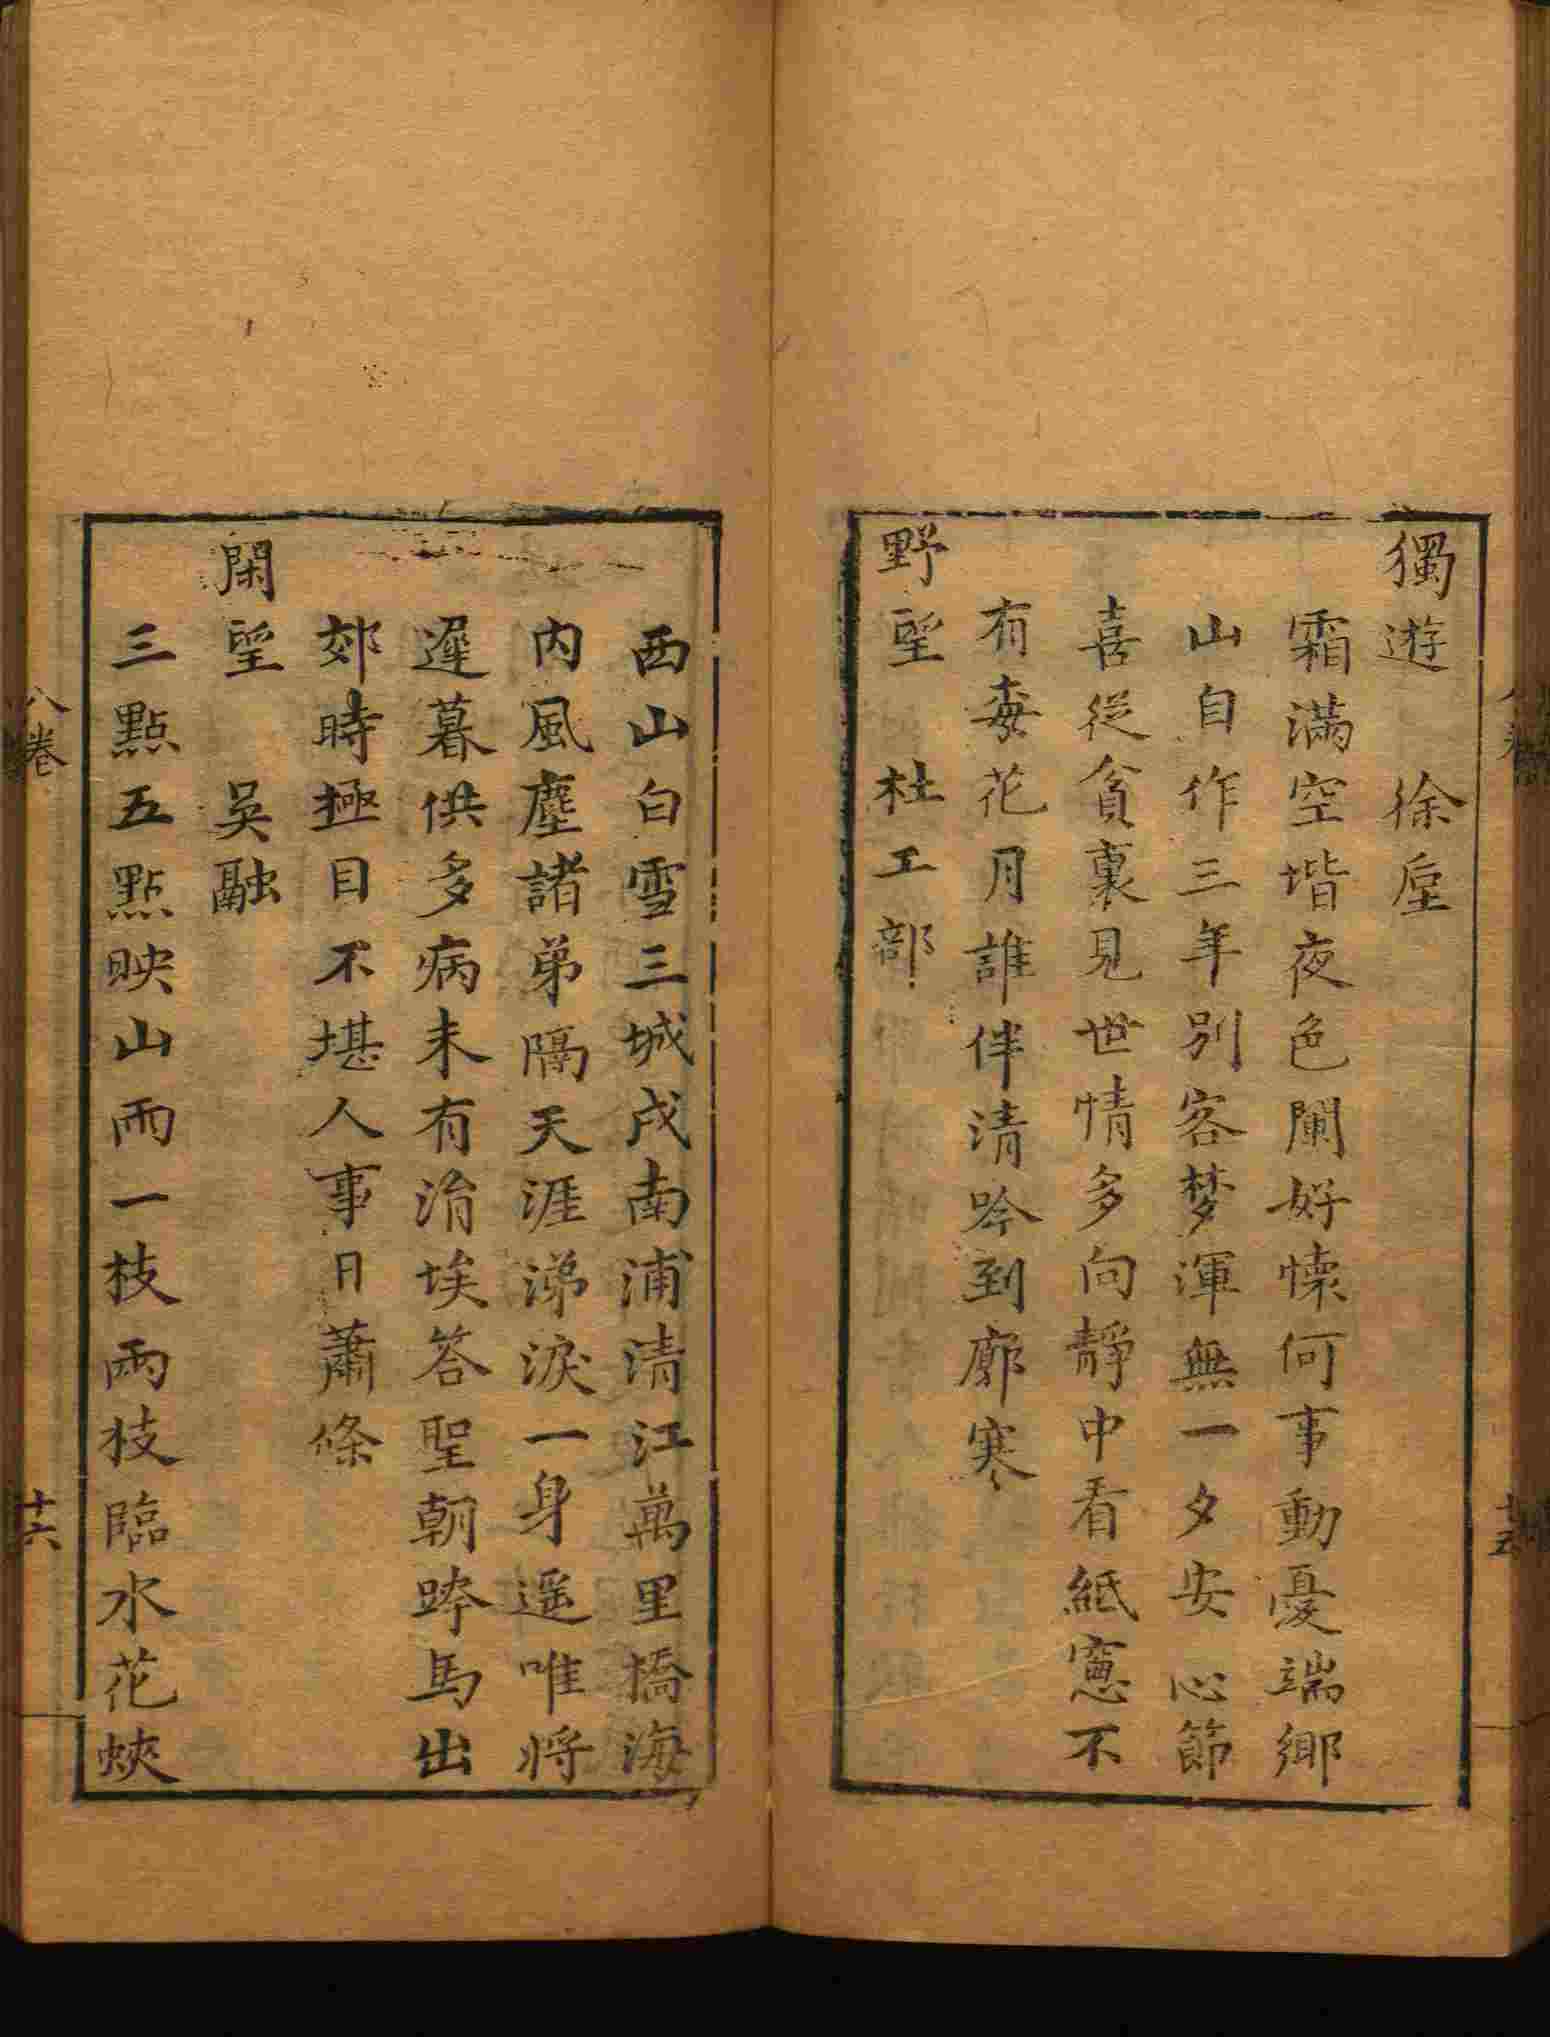 獨遊　徐垕
霜滿空堦夜色闌好懐何事動憂端鄉
山自作三年別客梦渾無一夕安心節
喜從貧裏見世情多向靜中看紙窻不
有每花月誰伴清吟到廓寒
野望　杜工部
西山白雪三城戍南浦清江萬里橋海
内風塵諸弟隔天涯涕淚一身遥唯将
遲暮供多病未有涓埃答聖朝跨馬出
郊時極目不堪人事日蕭條
閑望　吳融
三點五點映山雨一枝兩枝臨水花蛺
八卷
十六